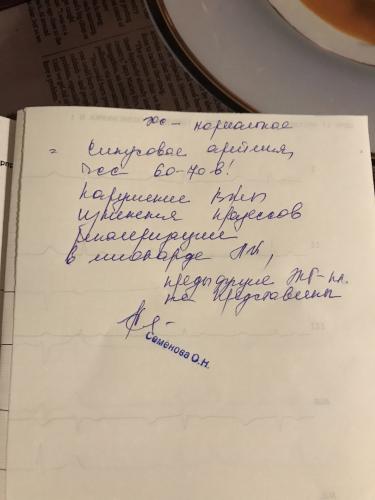 эос - нормальное
= Синусовая аритмия,
ЧСС 60-70 в1'
Нарушение ВЖП
изменения процессов
реполяризации
в миокарде ЛЖ,
предыдущие ЭКГ-пл.
не представлены
Семенова О.Н.